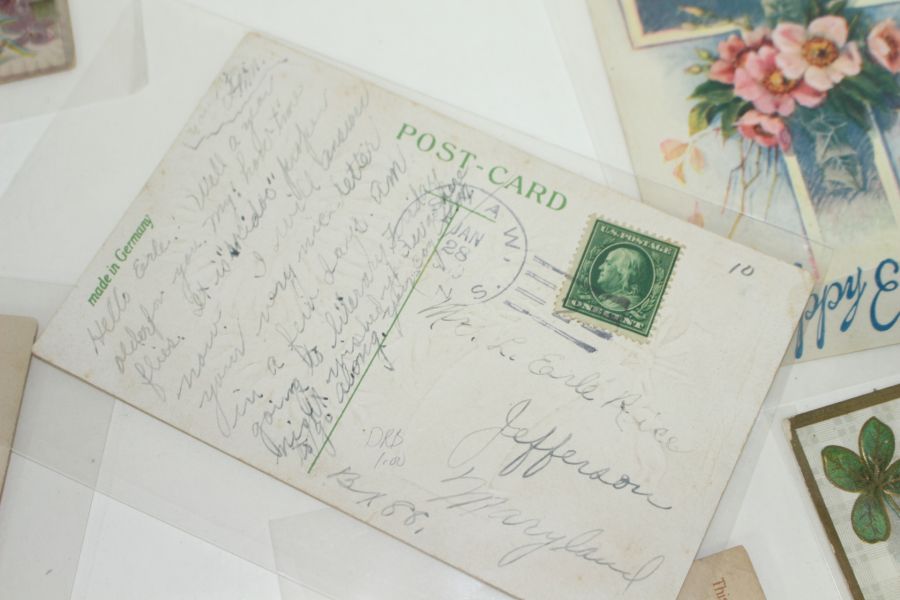 POST-CARD
made in Germany
Hello Earle: Well a year
older. you my! how time
flies. Ex is "Kidso" take
now. I will answer
your very nice letter
in a few days. am
going to literary Friday
night. wished you
to go along.
JAN
28
U.S. POSTAGE
ONE CENT
Mr. L. Earle Rice
Jefferson
Maryland
Bx 88.
DRB
1.00
10
This